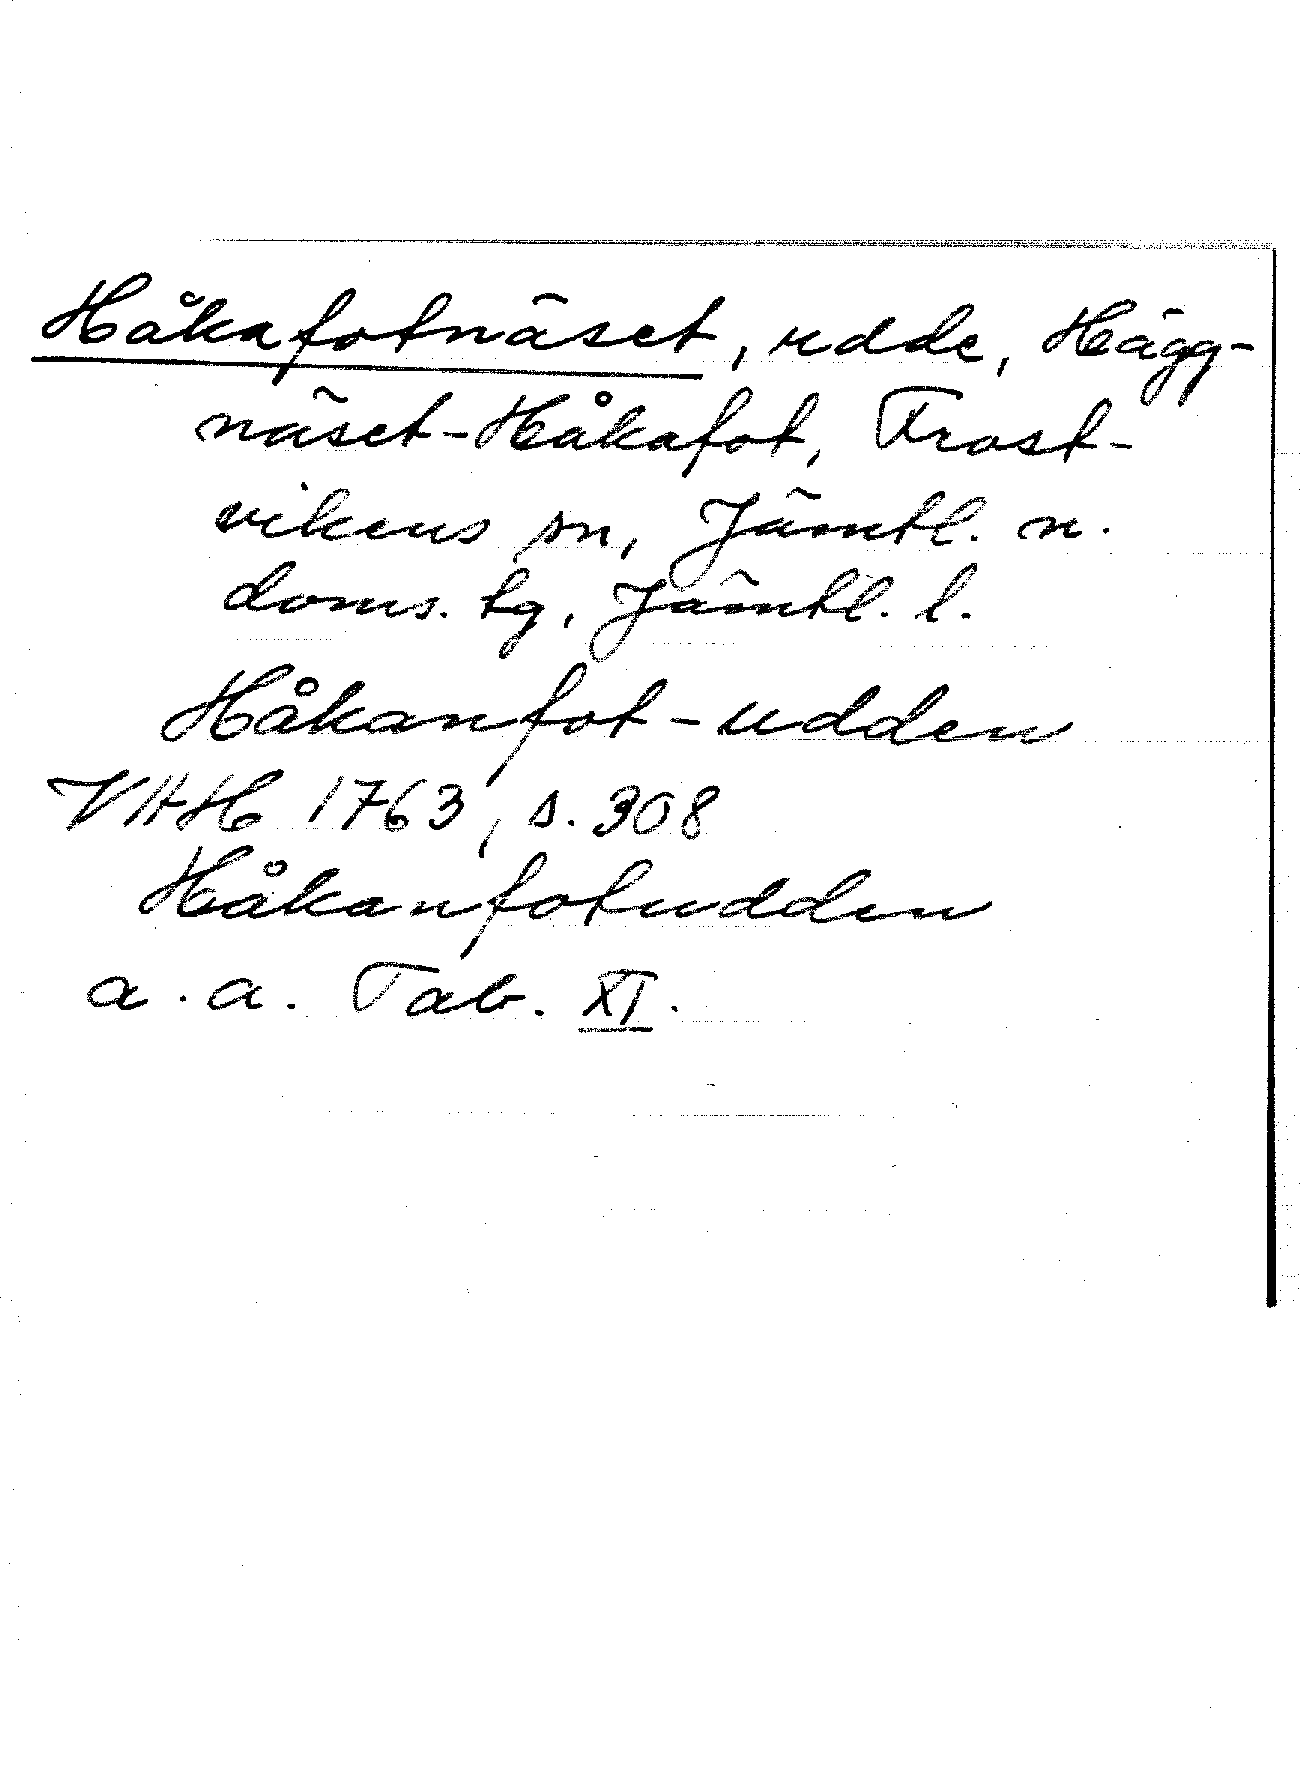 Håkafotnäset, udde, Hägg-
näset-Håkafot, Frost-
vikens sn, Jämtl. n.
doms. tg, Jämtl. l.
Håkanfot-udden
VHH 1763, s. 308
Håkanfotudden
a. a. Tab. XI.